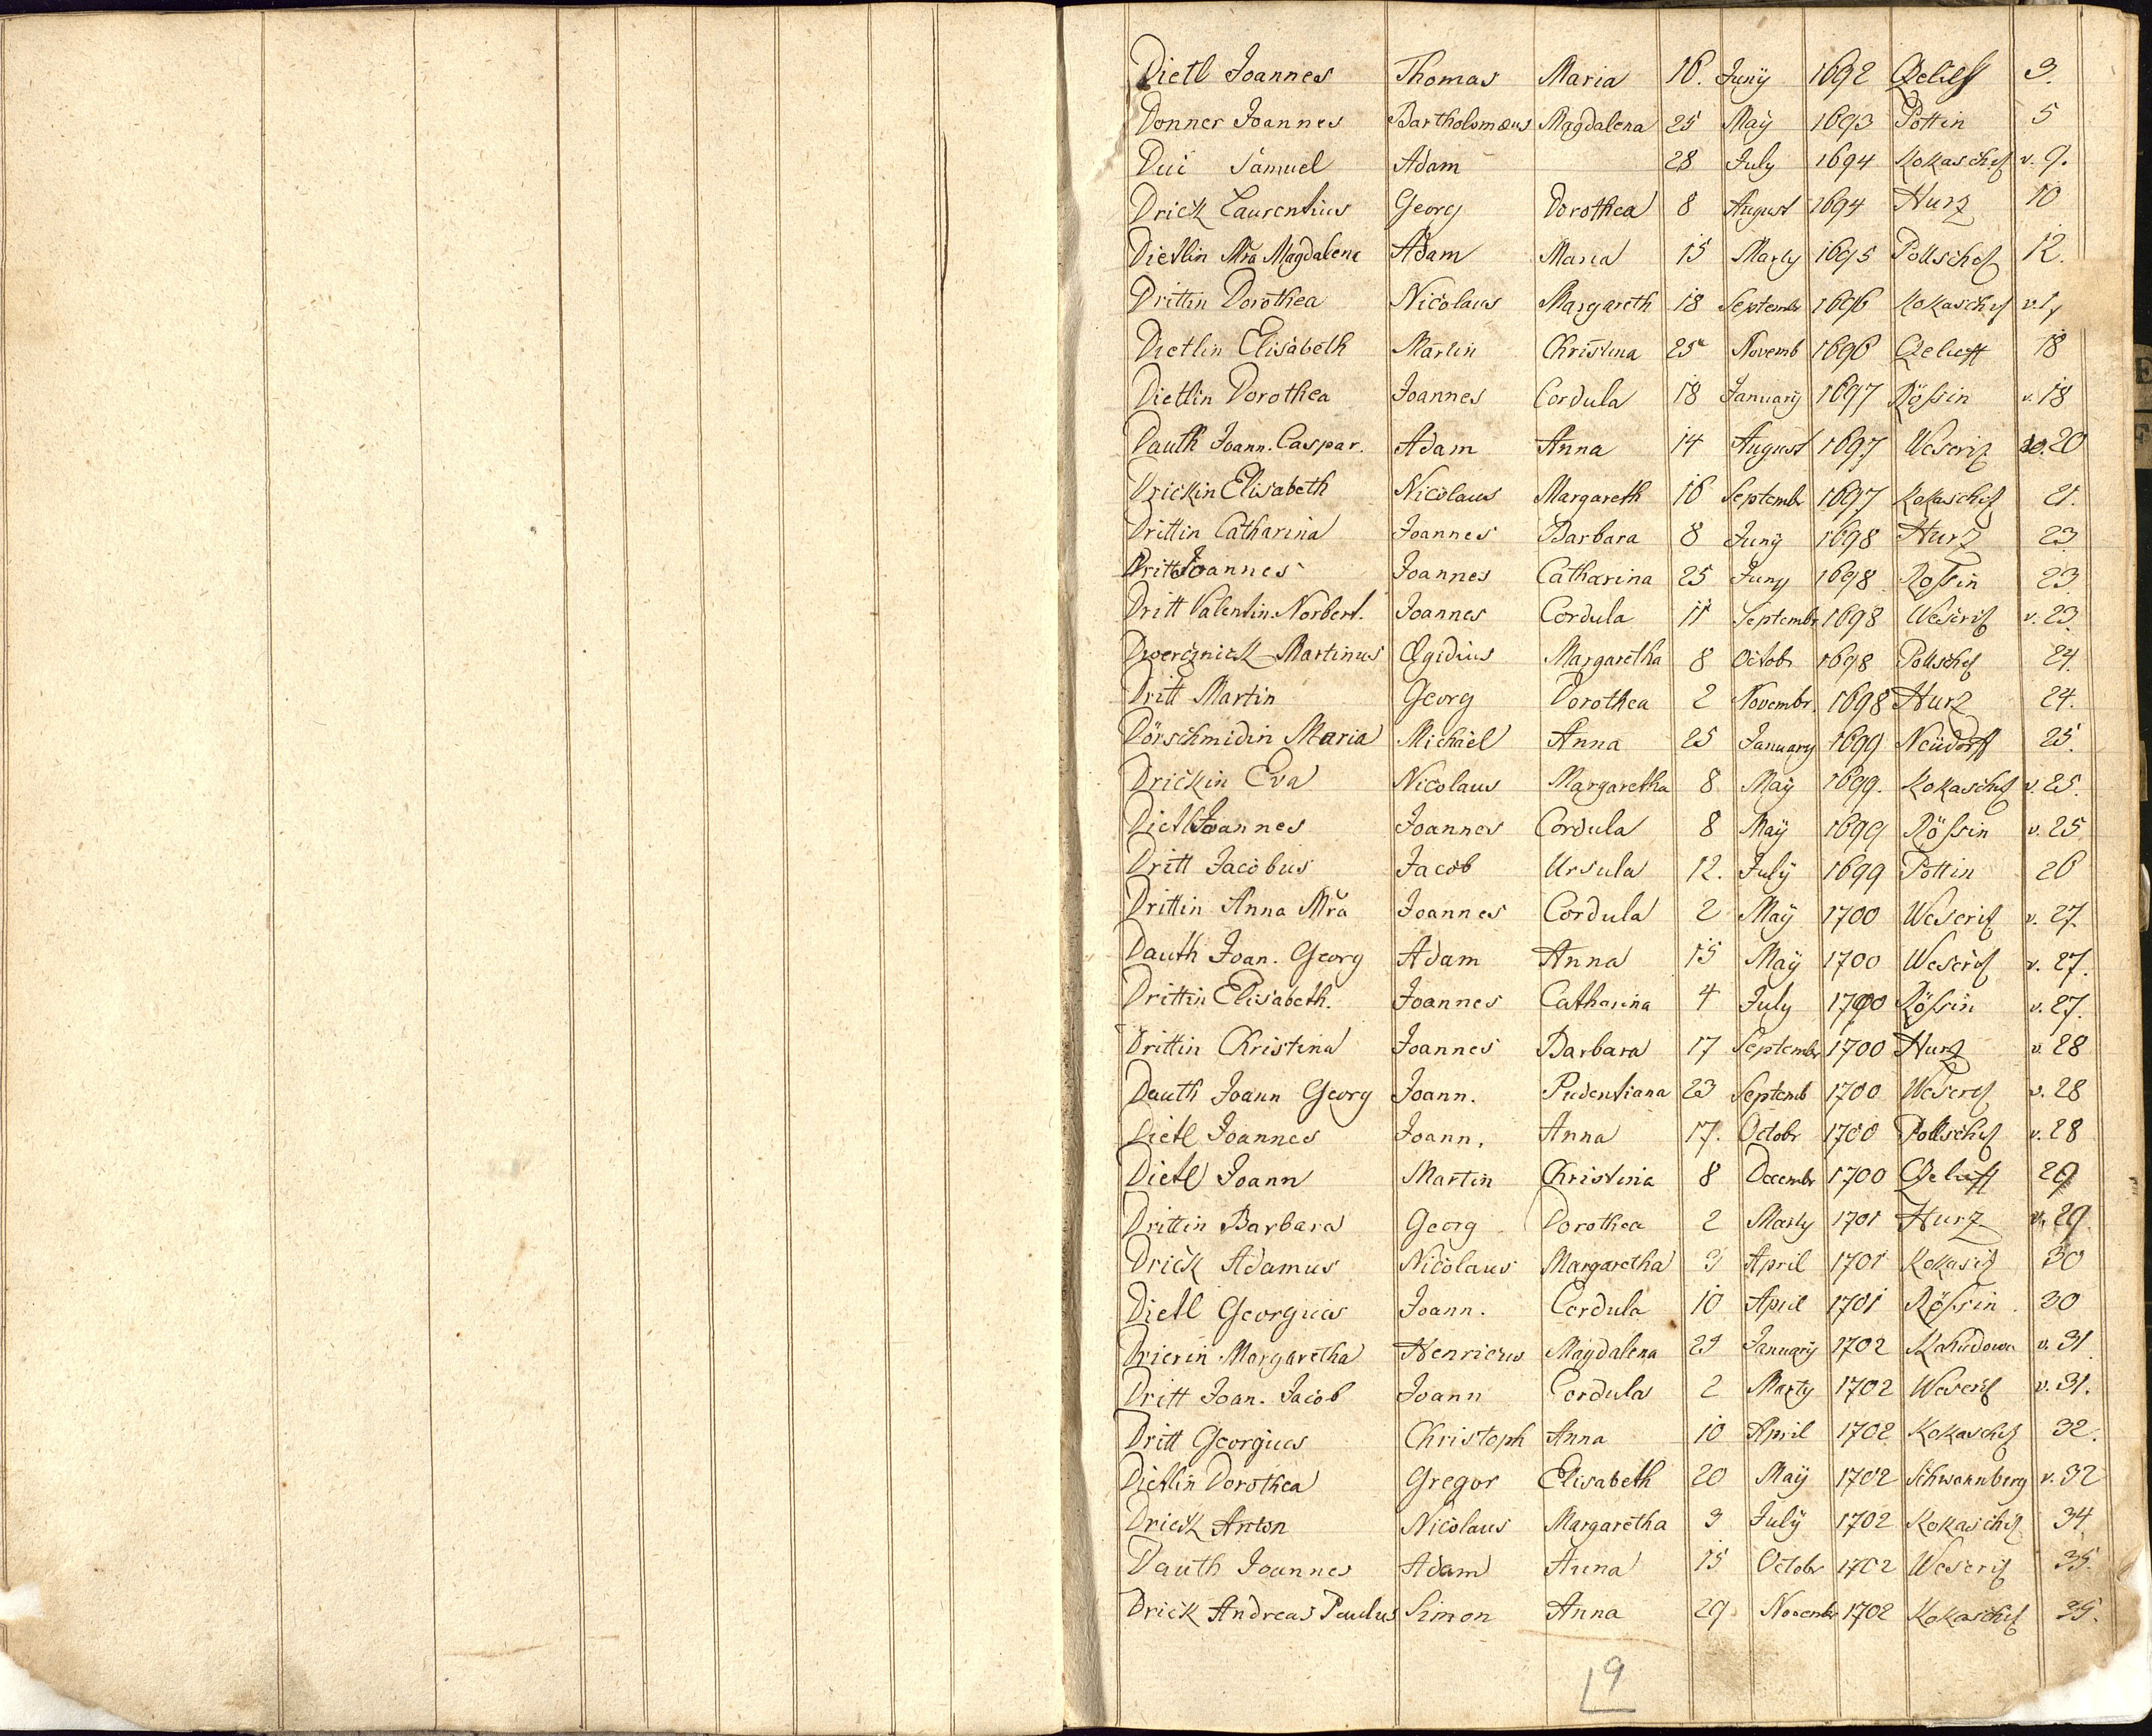 Dietl Joannes Thomas Maria 16. Junÿ 1692 3.
Donner Joannes Bartholomæus Magdalena 25 Maÿ 1693 Pottin 5
Dui Samuel Adam 28 July 1694 Kokaschiz v. 9.
Drick Laurentius Georg Dorothea 8 August 1694 Hurz 10
Dietlin Mra Magdalena Adam Maria 15 Marty 1695 Pollschiz 12.
Drittin Dorothea Nicolaus Margareth 18 Septembr 1696 Kokaschiz
Dietlin Elisabeth Martin Christina 25 Novemb 1696 18
Dietlin Dorothea Joannes Cordula 18 Januarÿ 1697 Rößin v. 18
Dauth Joann. Caspar. Adam Anna 14 August 1697 Weseriz 20
Drickin Elisabeth Nicolaus Margareth 16 Septembr 1697 Kokaschiz 21.
Drittin Catharina Joannes Barbara 8 Junÿ 1698 Hurz 23
Dritt Joannes Joannes Catharina 25 Juny 1698 Roßin 23
Dritt Valentin. Norbert. Joannes Cordula 11 Septembr 1698 Weseriz v. 23
Dwercznick Martinus Ægidius Margaretha 8 Octobr 1698 Pollschiz 24.
Dritt Martin Georg Dorothea 2 Novembr. 1698 Hurz 24.
Dörschmidin Maria Michael Anna 25 January 1699 Neüdorff 25.
Drickin Eva Nicolaus Margaretha 8 Maÿ 1699. Kokaschiz v. 25.
Dietl Joannes Joannes Cordula 8 Maÿ 1699 Rößin v. 25
Dritt Jacobus Jacob Ursula 12. July 1699 Pottin 26
Drittin Anna Mra Joannes Cordula 2 Maÿ 1700 Weseriz v. 27
Dauth Joan. Georg Adam Anna 15 Maÿ 1700 Weseriz v. 27.
Drittin Elisabeth. Joannes Catharina 4 July 1700 Rößin v. 27.
Drittin Christina Joannes Barbara 17 Septembr 1700 Hurz v. 28
Dauth Joann Georg Joann. Pudentiana 23 Septemb 1700 Weseriz v. 28
Dietl Joannes Joann. Anna 17. Octobr 1700 Pollschiz v. 28
Dietl Joann Martin Christina 8 Decembr 1700 29
Drittin Barbara Georg Dorothea 2 Marty 1701 Hurz v. 29
Drick Adamus Nicolaus Margaretha 3 April 1701 Kokasiz 30
Dietl Georgius Joann. Cordula 10 April 1701 Rößin 30
Drierin Margaretha Henricus Magdalena Januarÿ 1702 v. 31
Dritt Joan. Jacob Joann Cordula 2 Marty 1702 Weseriz v. 31.
Dritt Georgius Christoph Anna 10 April 1702 Kokaschiz 32.
Dietlin Dorothea Gregor Elisabeth 20 Maÿ 1702 Schwannberg v. 32
Drick Anton Nicolaus Margaretha 3 Julÿ 1702 Kokaschiz 34
Dauth Joannes Adam Anna 15 Octobr 1702 Weseriz 35.
Drick Andreas Paulus Simon Anna 29 Novembr 1702 Kokaschiz 35.
9